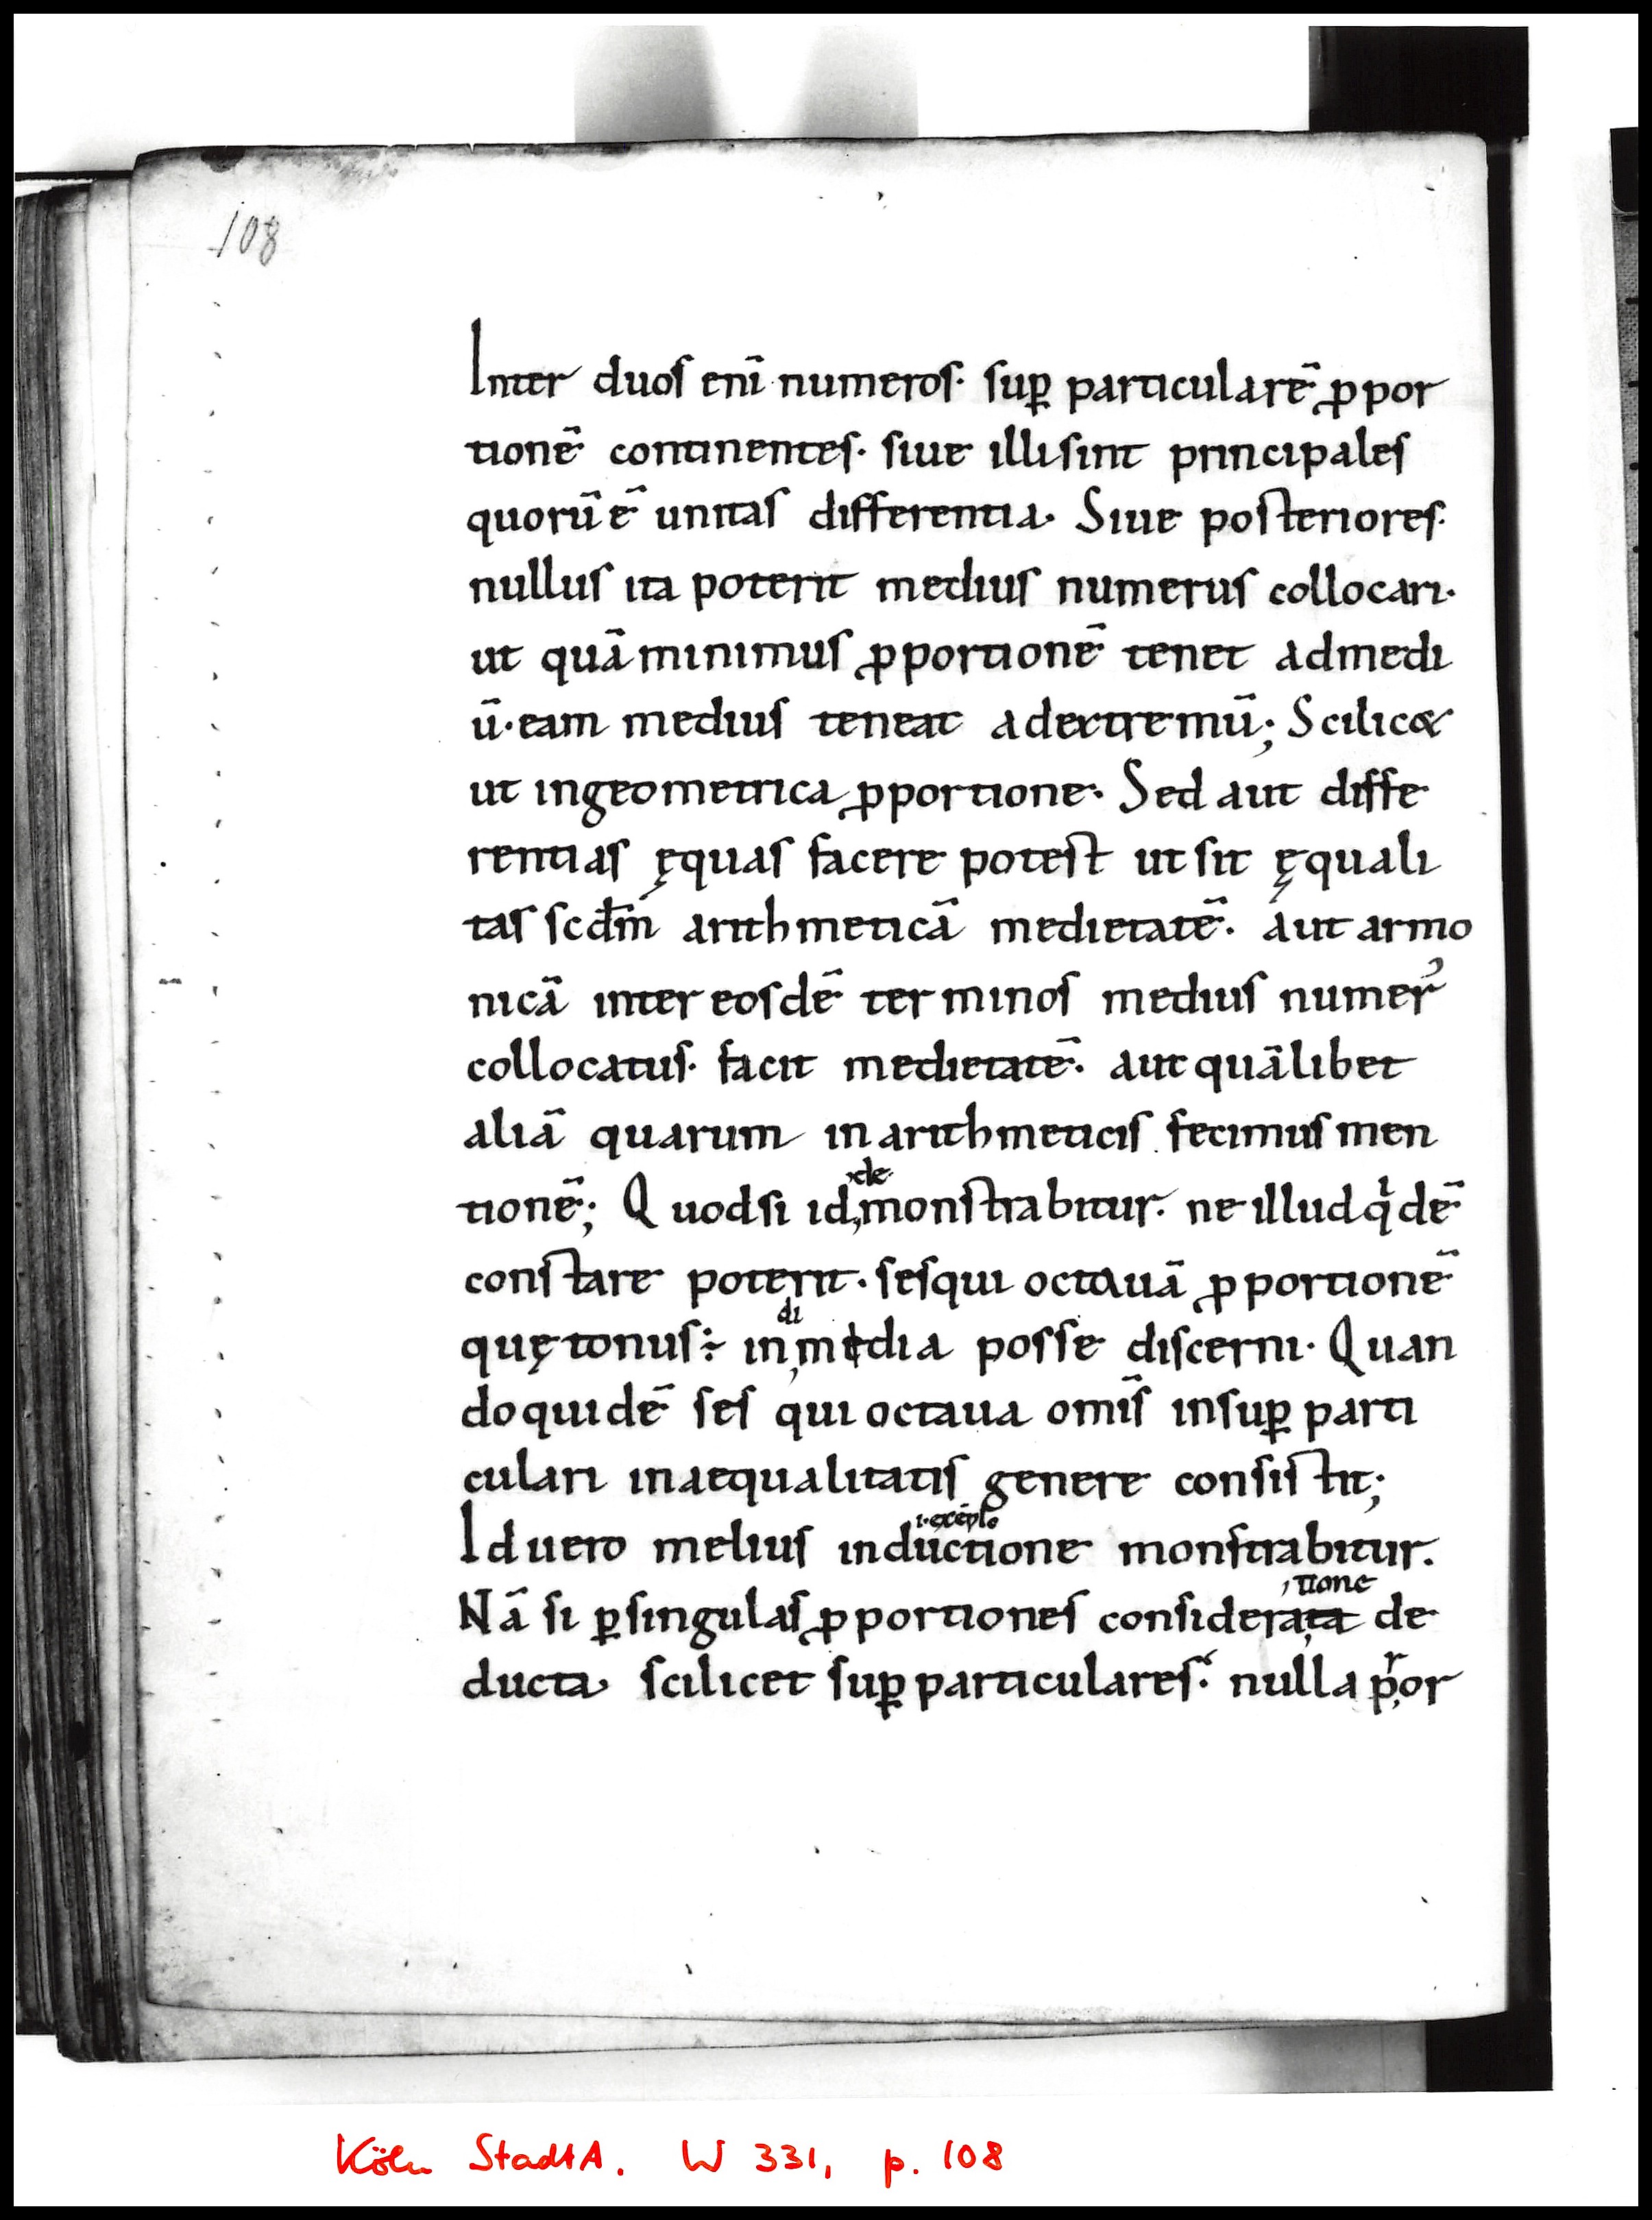 108
Inter duos enī numeros· suꝑ particularē ꝓpor
tionē continentes· siue illi sint principales
quorū ē unitas differentia· Siue posteriores·
nullus ita poterit medius numerus collocari·
ut quā minimus ꝓportionē tenet ad medi
ū· eam medius teneat ad extremū; Scilic&
ut in geometrica ꝓportione· Sed aut diffe
rentias ęquas facere potest ut sit ęquali
tas scdm̄ arithmeticā medietatē· aut armo
nicā inter eosdē terminos medius numer᾿
collocatus· facit medietatē· aut quālibet
aliā quarum in arithmeticis fecimus men
de
tionē; Quod si id, monstrabitur· ne illud qͥdē
constare poterit· sesqui octauā ꝓportionē
di
quę tonus ÷ in, media posse discerni· Quan
do quidē ses qui octaua om̄is in suꝑ parti
culari inaequalitatis genere consistit;
i· exēplo
Id uero melius inductione monstrabitur.
, tione
Nā si ꝑ singulas ꝓportiones considerata de
ducta· scilicet suꝑ particulares· nulla pͬ,or
Köln StadtA. W 331, p. 108